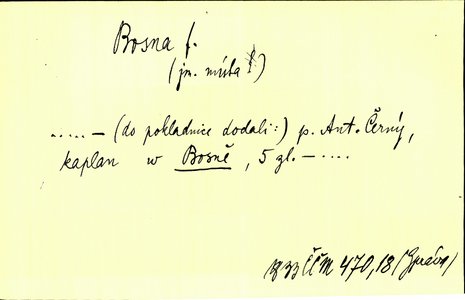 Bosna f.
(jm. místa)
..... — (do pokladnice dodali:) p. Ant. Černý,
kaplan w Bosně, 5 zl. — ....
1833 ČČM 470,18 (Zprávy)